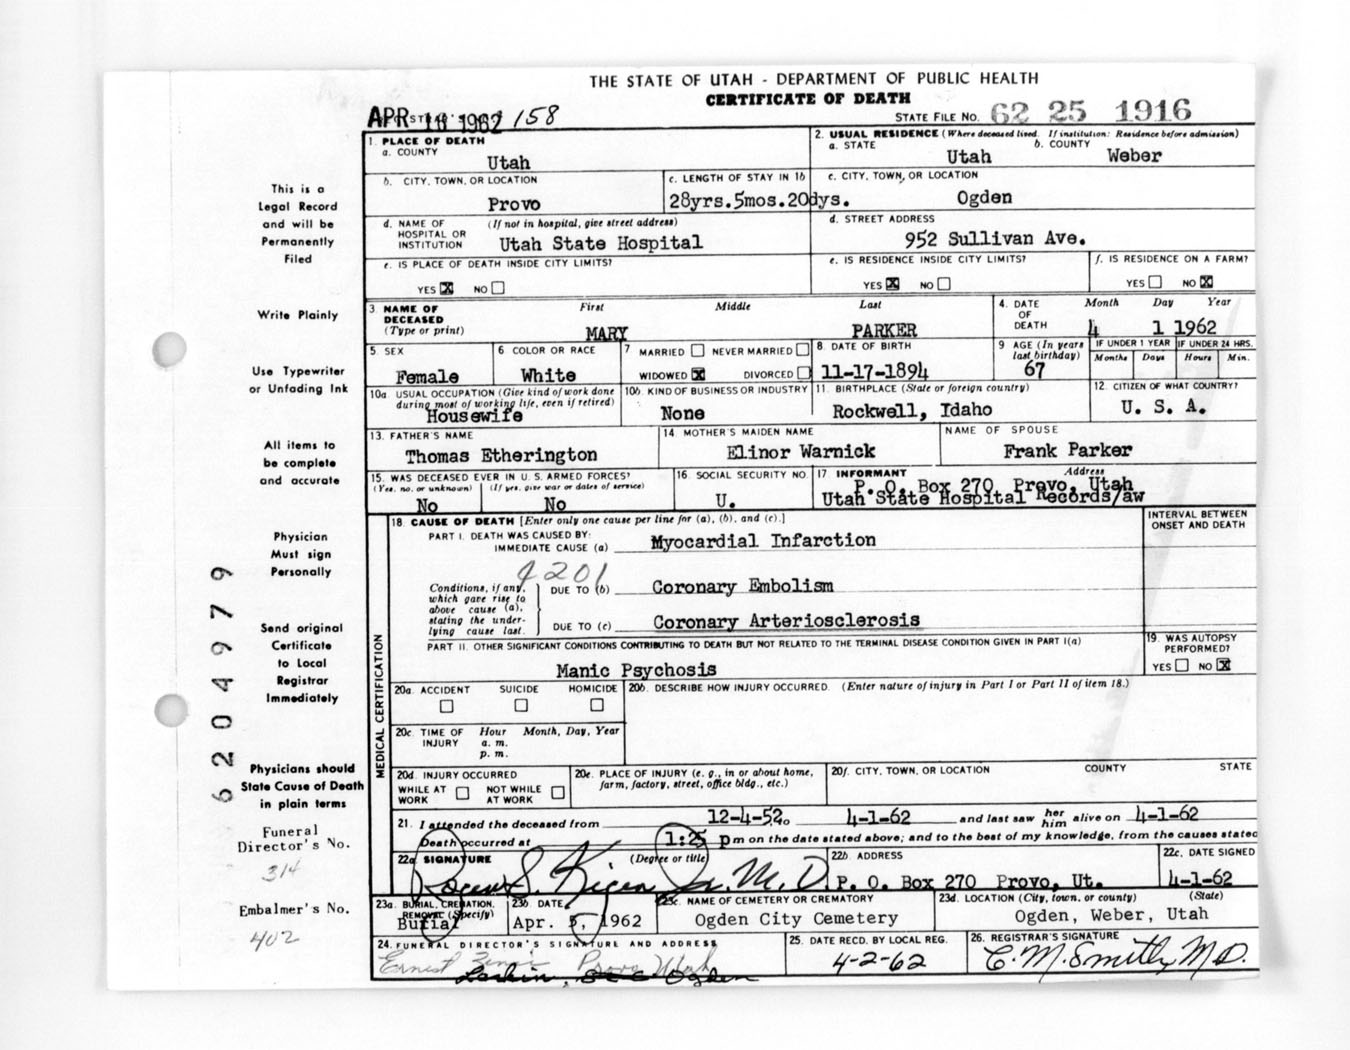 THE STATE OF UTAH - DEPARTMENT OF PUBLIC HEALTH
CERTIFICATE OF DEATH
APR 16 1962 158
STATE FILE NO. 62 25 1916
1. PLACE OF DEATH
a. COUNTY
Utah
2. USUAL RESIDENCE (Where deceased lived. If institution: Residence before admission)
a. STATE Utah b. COUNTY Weber
b. CITY, TOWN, OR LOCATION
Provo
c. LENGTH OF STAY IN 1b
28yrs.5mos.20dys.
c. CITY, TOWN, OR LOCATION
Ogden
d. NAME OF HOSPITAL OR INSTITUTION (If not in hospital, give street address)
Utah State Hospital
d. STREET ADDRESS
952 Sullivan Ave.
e. IS PLACE OF DEATH INSIDE CITY LIMITS?
YES X NO
e. IS RESIDENCE INSIDE CITY LIMITS?
YES X NO
f. IS RESIDENCE ON A FARM?
YES NO X
3. NAME OF DECEASED (Type or print)
First Middle Last
MARY PARKER
4. DATE OF DEATH Month Day Year
4 1 1962
5. SEX
Female
6 COLOR OR RACE
White
7 MARRIED NEVER MARRIED
WIDOWED X DIVORCED
8 DATE OF BIRTH
11-17-1894
9 AGE (In years last birthday)
67
IF UNDER 1 YEAR
Months Days
IF UNDER 24 HRS.
Hours Min.
10a. USUAL OCCUPATION (Give kind of work done during most of working life, even if retired)
Housewife
10b. KIND OF BUSINESS OR INDUSTRY
None
11. BIRTHPLACE (State or foreign country)
Rockwell, Idaho
12. CITIZEN OF WHAT COUNTRY?
U. S. A.
13. FATHER'S NAME
Thomas Etherington
14. MOTHER'S MAIDEN NAME
Elinor Warnick
NAME OF SPOUSE
Frank Parker
15. WAS DECEASED EVER IN U.S. ARMED FORCES?
(Yes, no, or unknown) (If yes, give war or dates of service)
No No
16. SOCIAL SECURITY NO.
U.
17 INFORMANT Address
P. O. Box 270 Provo, Utah
Utah State Hospital Records/aw
MEDICAL CERTIFICATION
18. CAUSE OF DEATH [Enter only one cause per line for (a), (b), and (c).]
INTERVAL BETWEEN ONSET AND DEATH
PART I. DEATH WAS CAUSED BY:
IMMEDIATE CAUSE (a) Myocardial Infarction
4201
Conditions, if any, which gave rise to above cause (a), stating the underlying cause last.
DUE TO (b) Coronary Embolism
DUE TO (c) Coronary Arteriosclerosis
PART II. OTHER SIGNIFICANT CONDITIONS CONTRIBUTING TO DEATH BUT NOT RELATED TO THE TERMINAL DISEASE CONDITION GIVEN IN PART I(a)
Manic Psychosis
19. WAS AUTOPSY PERFORMED?
YES NO X
20a. ACCIDENT SUICIDE HOMICIDE
20b. DESCRIBE HOW INJURY OCCURRED. (Enter nature of injury in Part I or Part II of item 18.)
20c. TIME OF INJURY Hour Month, Day, Year
a. m.
p. m.
20d. INJURY OCCURRED
WHILE AT WORK NOT WHILE AT WORK
20e. PLACE OF INJURY (e. g., in or about home, farm, factory, street, office bldg., etc.)
20f. CITY, TOWN, OR LOCATION COUNTY STATE
21. I attended the deceased from 12-4-52 o 4-1-62 and last saw her him alive on 4-1-62
Death occurred at 1:25 pm on the date stated above; and to the best of my knowledge, from the causes stated
22a SIGNATURE (Degree or title)
M.D.
22b. ADDRESS
P. O. Box 270 Provo, Ut.
22c. DATE SIGNED
4-1-62
23a. BURIAL, CREMATION, REMOVAL (Specify)
Burial
23b DATE
Apr. 5, 1962
23c. NAME OF CEMETERY OR CREMATORY
Ogden City Cemetery
23d. LOCATION (City, town, or county) (State)
Ogden, Weber, Utah
24. FUNERAL DIRECTOR'S SIGNATURE AND ADDRESS
Ernest Provo Utah
Larkin, Ogden
25. DATE RECD. BY LOCAL REG.
4-2-62
26. REGISTRAR'S SIGNATURE
C. M. Smith, M.D.
This is a
Legal Record
and will be
Permanently
Filed
Write Plainly
Use Typewriter
or Unfading Ink
All items to
be complete
and accurate
Physician
Must sign
Personally
Send original
Certificate
to Local
Registrar
Immediately
Physicians should
State Cause of Death
in plain terms
Funeral
Director's No.
314
Embalmer's No.
402
6204979